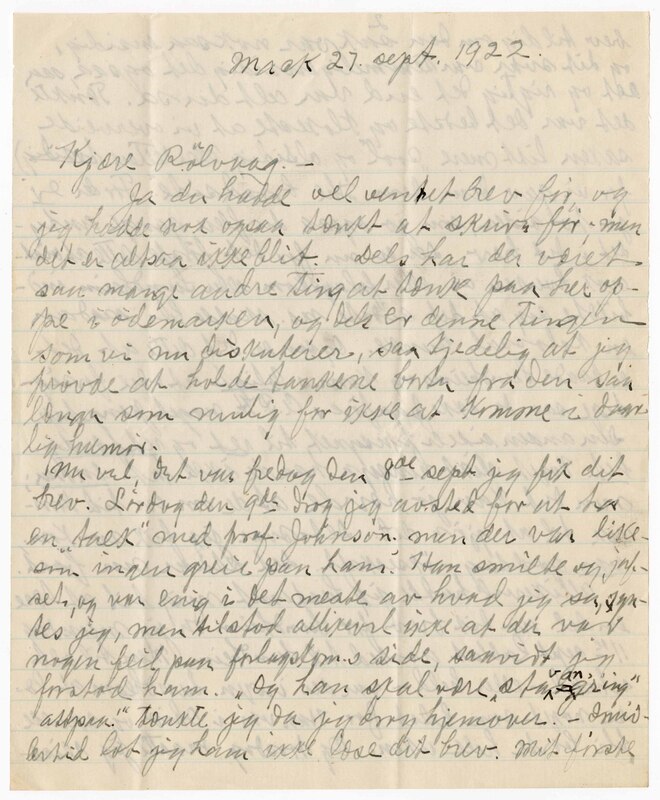 Mack 27. sept. 1922.
Kjære Rölvaag. –
Ja du hadde vel ventet brev før, og
jeg hadde nok ogsaa tænkt at skrive før, men
det er altsaa ikke blit. Dels har der været
saa mange andre Ting at tænke paa her op-
pe i ødemarken, og dels er denne Tingen
som vi nu diskuterer, saa kjedelig at jeg
prøvde at holde tankene borte fra den saa
længe som mulig for ikke at komme i daar-
lig humør.
Nu vel, det var fredag den 8de sept jeg fik dit
brev. Lørdag den 9de drog jeg avsted for at ha
en "talk" med prof. Johnson men der var like-
som ingen greie paa ham. Han smilte og
og var enig i det meste av hvad jeg sa, syn-
tes jeg, men tilstod allikevel ikke at der var
nogen feil paa forlagskom.s side, saavidt jeg
forstod ham. "Og han skal være
attpaa." tænkte jeg da jeg drog hjemover. – Imid-
lertid lot jeg ham ikke læse dit brev. Mit første